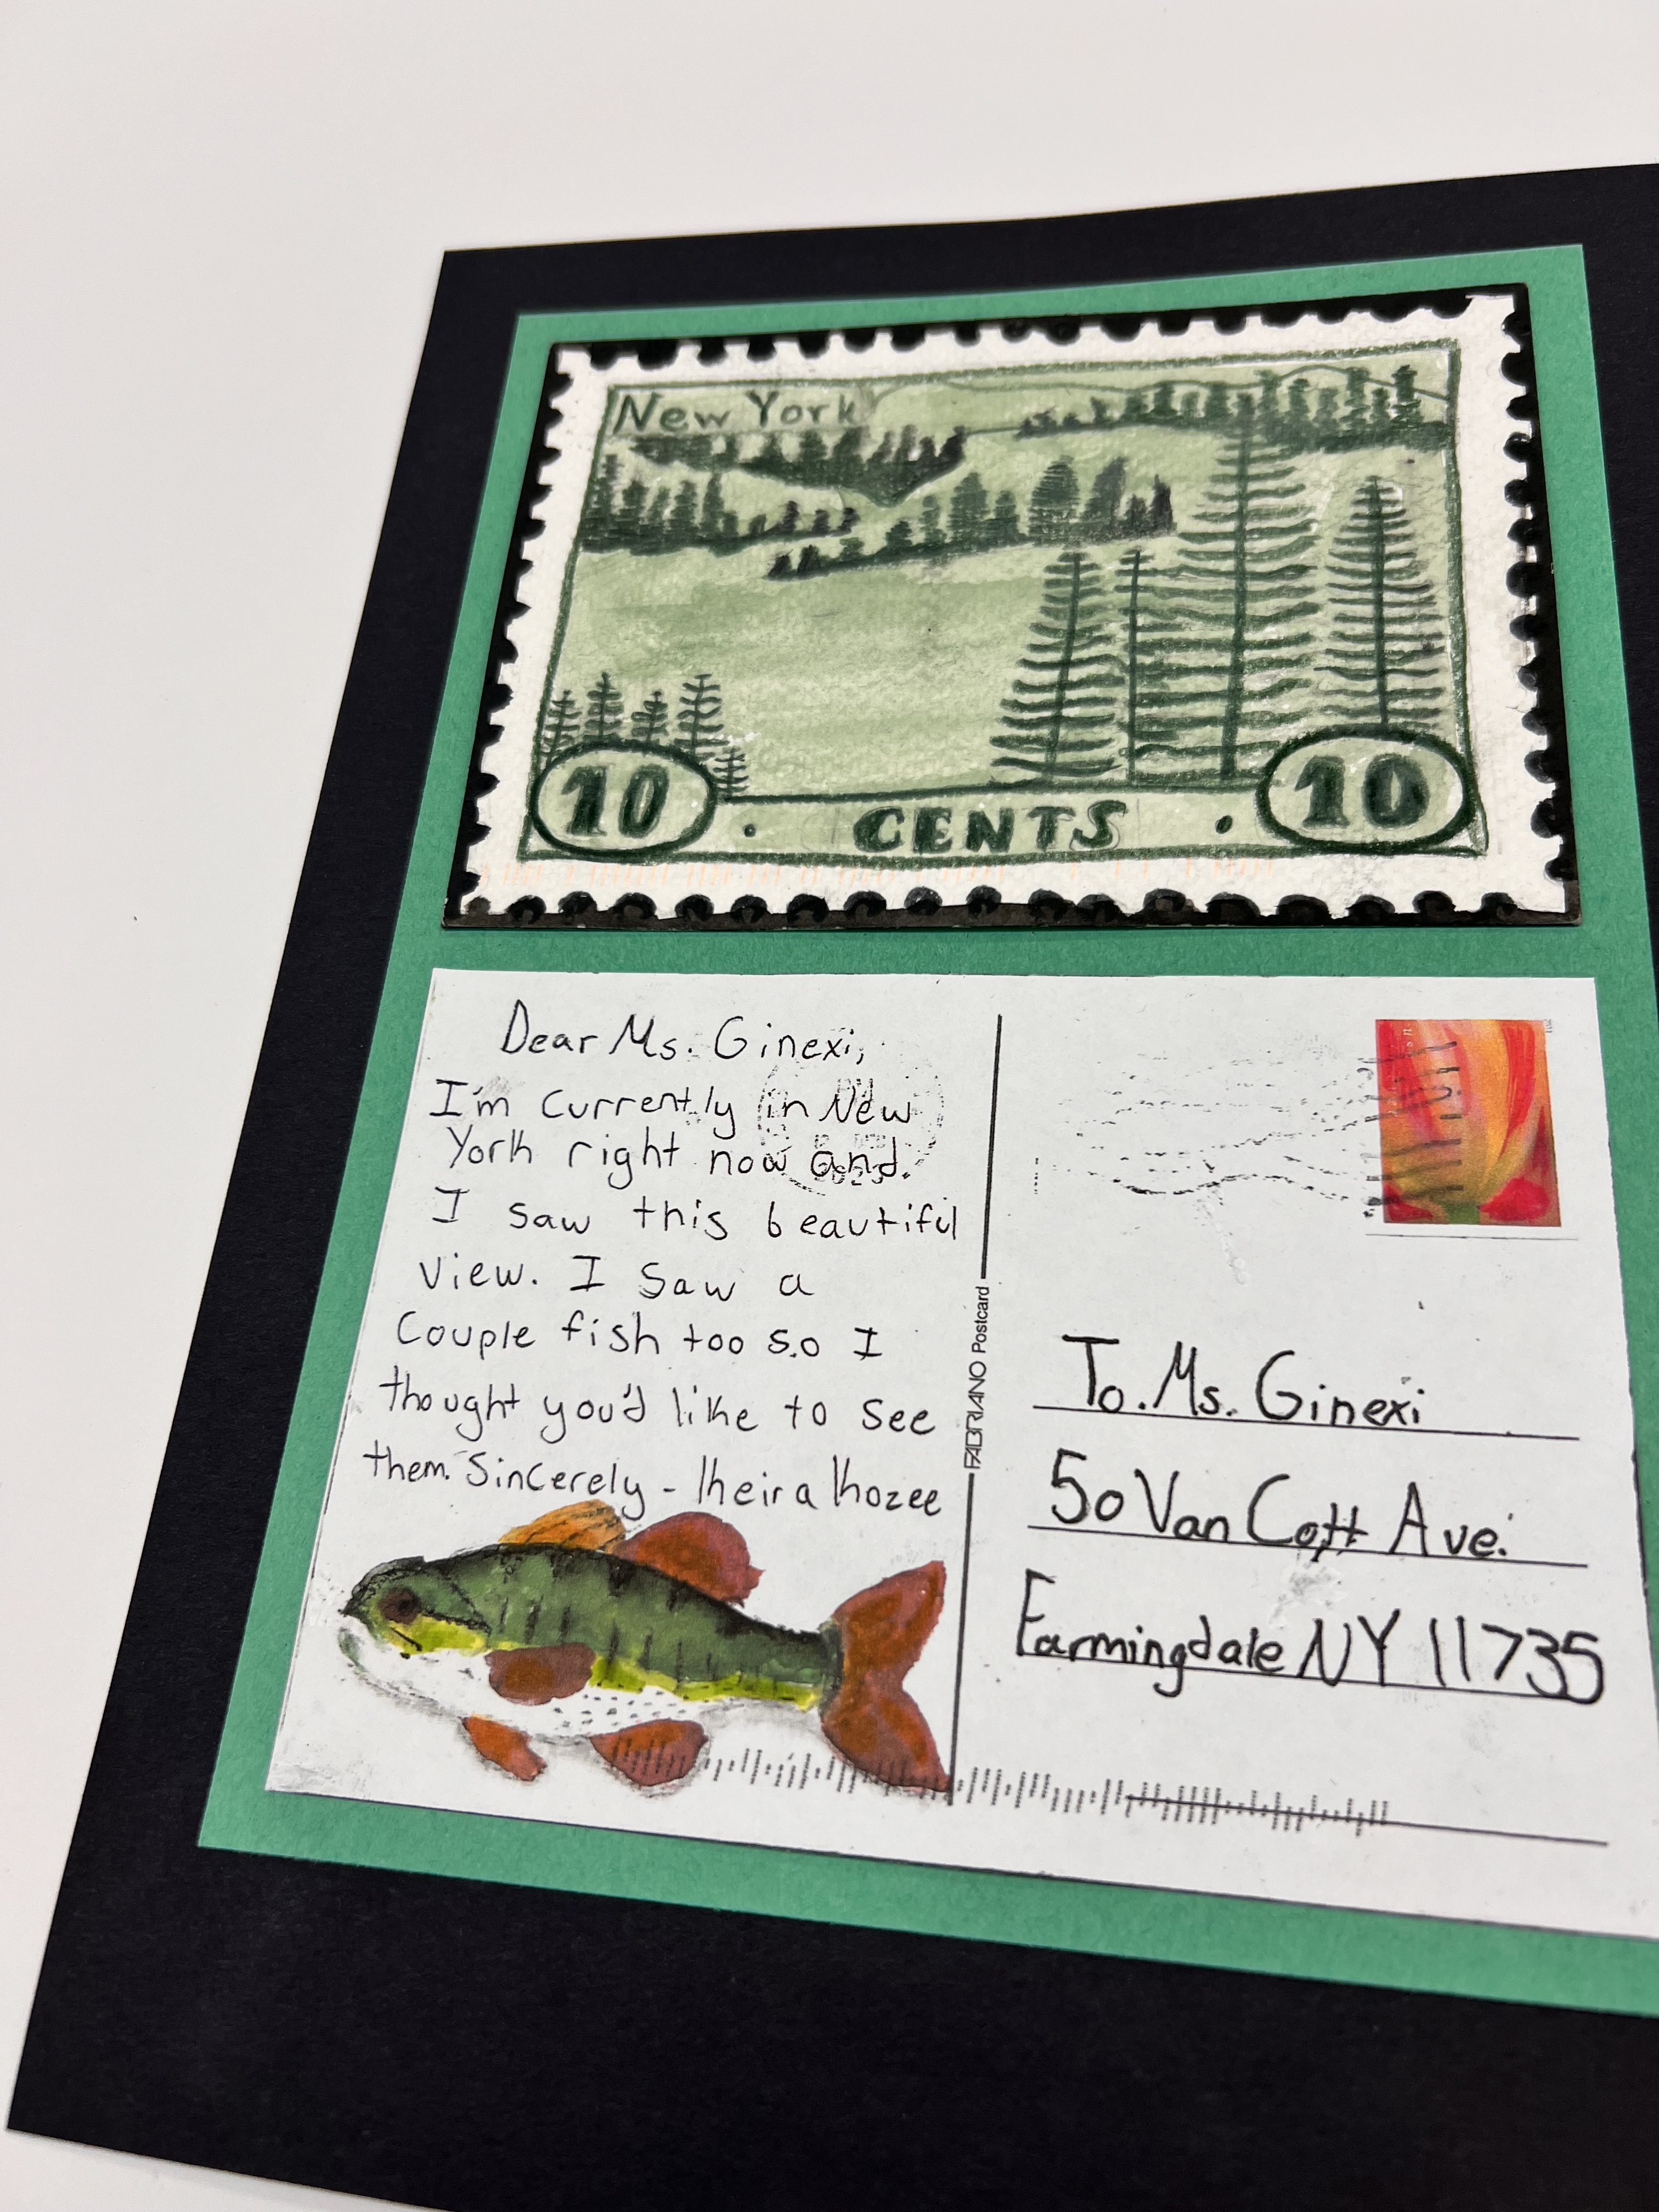 New York
10 CENTS 10
Dear Ms. Ginexi,
I'm currently in New
York right now and
I saw this beautiful
view. I saw a
Couple fish too so I
thought you'd like to see
them. Sincerely - Kheira Khozee
FABRIANO Postcard
To. Ms. Ginexi
50 Van Cott Ave.
Farmingdale NY 11735